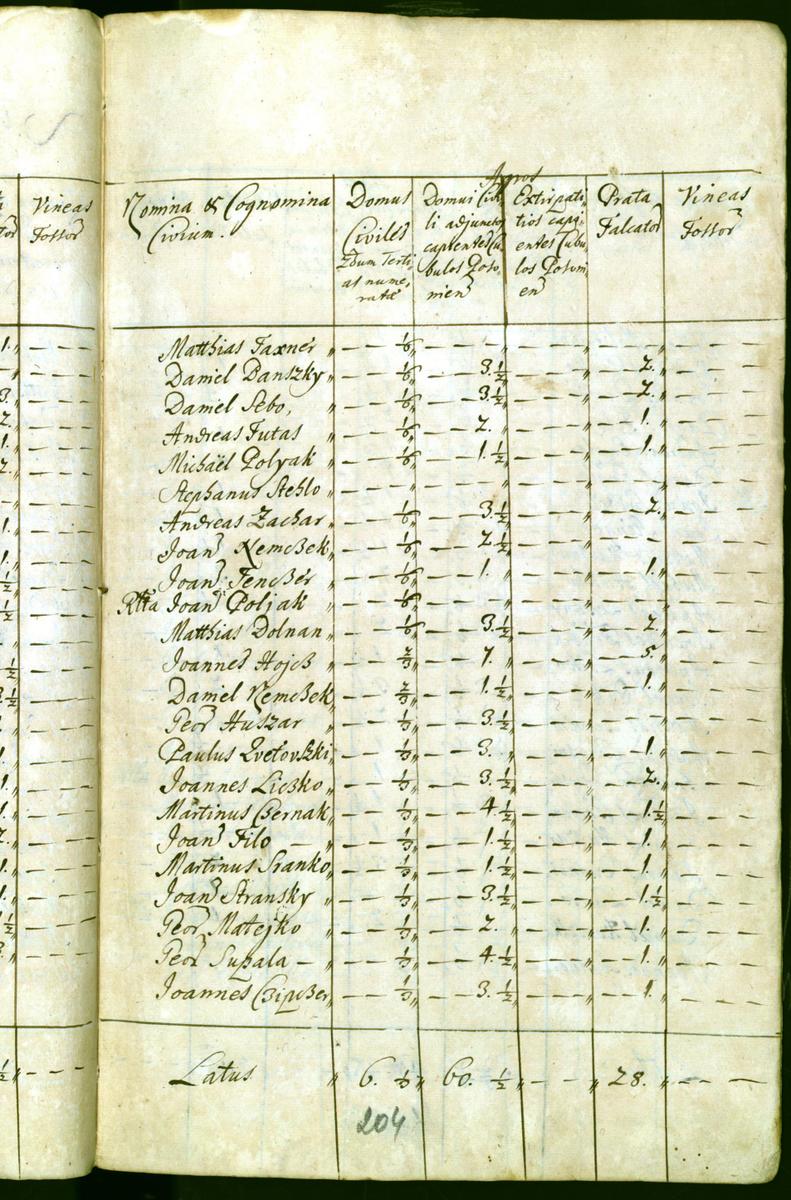 Agros
Nomina & Cognomina Civium.
Domus Civiles 2dum Tertias numeratæ
Domui Civili adjunctos capientes Cubulos Posonien
Extirpatitios capientes Cubulos Posonien
Prata Falcator
Vineas Fossor
Vineas Fossor
Matthias Taxner " — — 1/6 " — — " — — " — — " — —
Daniel Danszky " — — 1/6 " — 3. 1/2 " — — " — 2. " — —
Daniel Sebo, " — — 1/6 " — 3. 1/2 " — — " — 2. " — —
Andreas Futas " — — 1/6 " — 2. " — — " — 1. " — —
Michaël Polyak " — — 1/6 " — 1. 1/2 " — — " — 1. " — —
Stephanus Stehlo " — — " — — " — — " — — " — —
Andreas Zachar " — — 1/6 " — 3. 1/2 " — — " — 2. " — —
Joan Nemcsek " — — 1/6 " — 2. 1/2 " — — " — — " — —
Joan Fencser " — — 1/6 " — 1. " — — " — 1. " — —
Rtta Joan Poljak " — — 1/6 " — — " — — " — — " — —
Matthias Dolnan " — — 1/6 " — 3. 1/2 " — — " — 2. " — —
Joannes Hojcs " — — 2/3 " — 7. " — — " — 5. " — —
Daniel Nemcsek " — — 2/3 " — 1. 1/2 " — — " — 1. " — —
Geor Huszar " — — 1/3 " — 3. 1/2 " — — " — — " — —
Paulus Kvetovszki " — — 1/3 " — 3. " — — " — 1. " — —
Joannes Liczko " — — 1/3 " — 3. 1/2 " — — " — 2. " — —
Martinus Csernak " — — 1/3 " — 4. 1/2 " — — " — 1. 1/2 " — —
Joan Filo — " — — 1/3 " — 1. 1/2 " — — " — 1. " — —
Martinus Sranko " — — 1/3 " — 1. 1/2 " — — " — 1. " — —
Joan Stransky " — — 1/3 " — 3. 1/2 " — — " — 1. 1/2 " — —
Geor Matejko " — — 1/3 " — 2. " — — " — 1. " — —
Geor Supala — " — — 1/3 " — 4. 1/2 " — — " — 1. " — —
Joannes Csipcser " — — 1/3 " — 3. 1/2 " — — " — 1. " — —
Latus " 6. 1/3 " 60. 1/2 " — — " 28. " — —
204